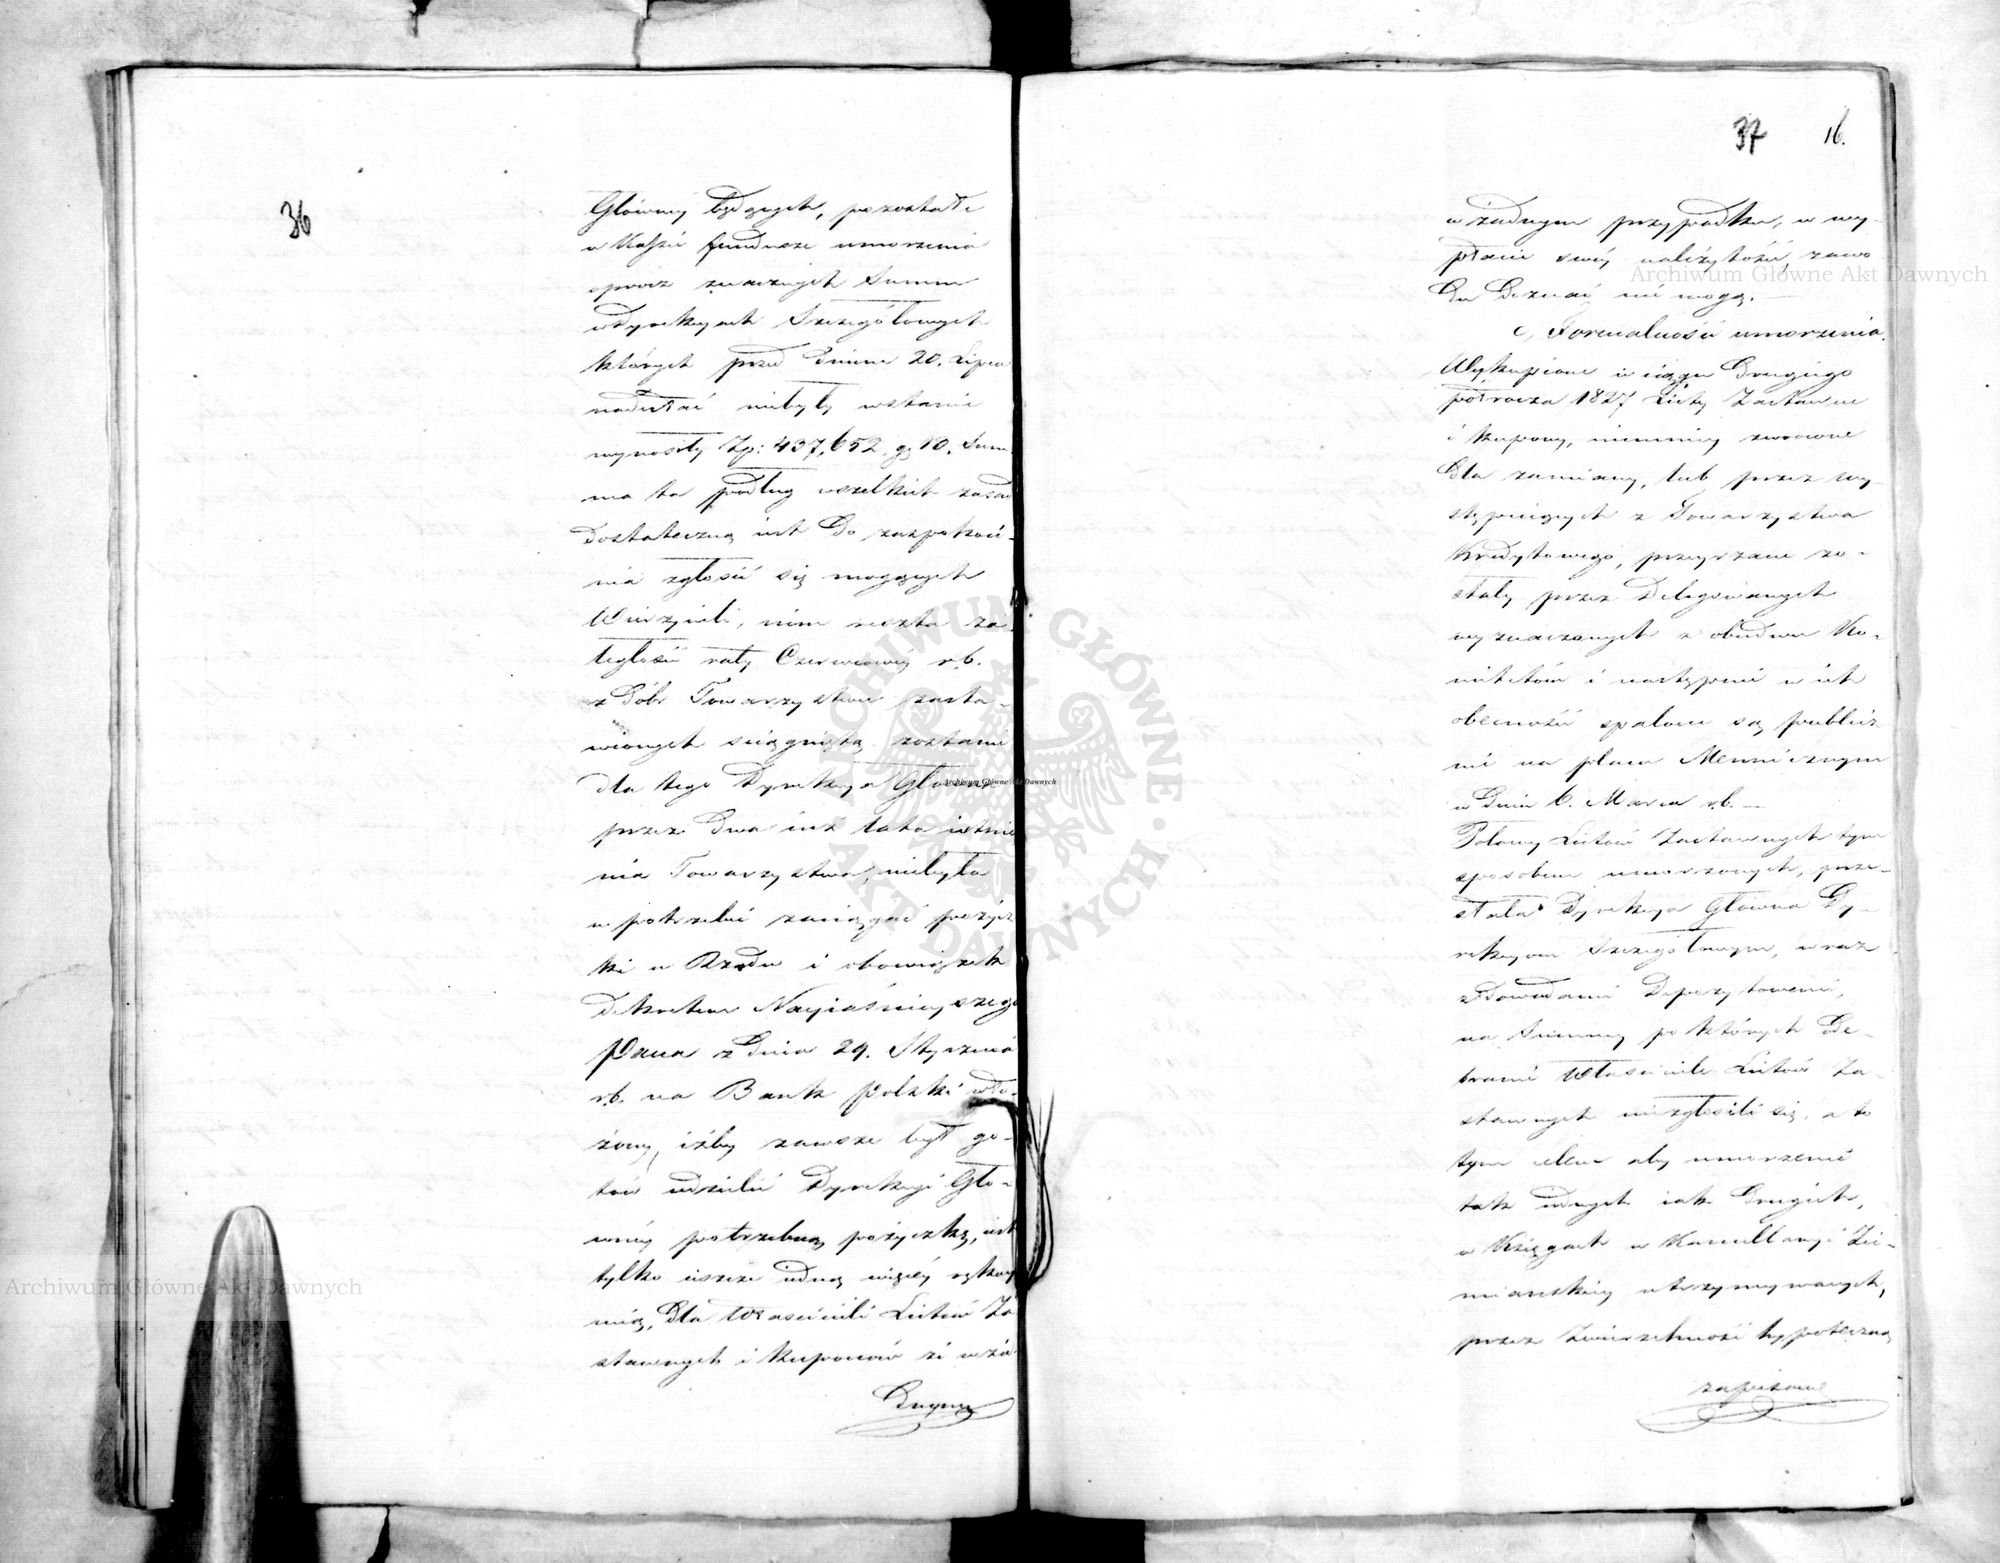 36
Główney będących, pozostałe
w Kassie fundusze umorzenia
oprócz znacznych Summ
w Dyrekcyach Szczegółowych
których przed dniem 20. Lipca
nadesłać niebyły wstanie
wynosiły Zp: 437,652. gr 10. Sum
ma ta podług wszelkich zasad
dostateczną iest do zaspokoie-
nia zgłosić się mogących
Wierzycieli, nim reszta za-
ległości raty Czerwcowey r.b.
z Dóbr Towarzystwu zasta-
wionych ściągniętą zostanie
dla tego Dyrekcya Główna
przez dwa iuż lata istnie
nia Towarzystwa, niebyła
w potrzebie zaciągać pożycz
ki u Rządu i obowiązek
Dekretem Nayiaśnieyszego
Pana z dnia 29. Stycznia
r.b. na Bank Polski wło-
żony, iżby zawsze był go-
tów udzielić Dyrekcyi Głó-
wney potrzebną pożyczkę, iest
tylko ieszcze iedną więcéy rękoy
mią, dla Właścicieli Listów Za
stawnych i Kuponów że w ża
dnym
37 16.
w żadnym przypadku, w wy-
płacie swéy należytości, zawo
du doznać nie mogą. —
c, Formalności umorzenia.
Wykupione w ciągu drugiego
półrocza 1827 Listy Zastawne
i Kupony, niemniey zwrócone
dla zamiany, lub przez wy-
stępuiących z Towarzystwa
Kredytowego, przeyrzane zo-
stały przez Delegowanych
wyznaczonych z obudwu Ko-
mitetów i następnie w ich
obecności spalone są publicz
nie na placu Mennicznym
w dniu 6. Marca r.b. —
Połowy Listów Zastawnych tym
sposobem umorzonych, prze-
słała Dyrekcya Główna Dy-
rekcyom Szczegółowym, wraz
z Dowodami Depozytowemi,
na Summy po których ode-
branie Właściciele Listów Za-
stawnych niezgłosili się, a to
tym celem aby umorzenie
tak iednych iak drugich,
w Księgach w Kancellaryi Zie-
miańskiey utrzymywanych,
przez Zwierzchność hypoteczną
zapisane